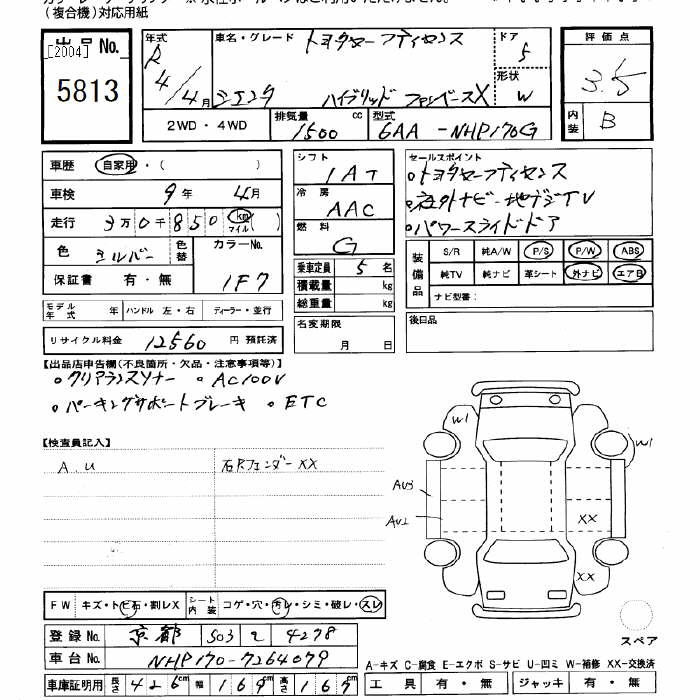 (複合機)対応用紙
出品No. [2004] 5813
年式 R 4/4月
車名・グレード トヨタセーフティセンス
シエンタ ハイブリッド ファンベースX
ドア 5
形状 W
評価点 3.5
内装 B
2WD・4WD
排気量 1500 cc
型式 6AA-NHP170G
車歴 自家用・( )
車検 9年 4月
走行 3万0千850 km マイル ( )
色 シルバー 色替 カラーNo. 1F7
保証書 有・無
モデル年式 年 ハンドル 左・右 ディーラー・並行
リサイクル料金 12560 円 預託済
シフト IAT
冷房 AAC
燃料 G
乗車定員 5 名
積載量 kg
総重量 kg
名変期限 月 日
セールスポイント
・トヨタセーフティセンス
・社外ナビー地デジTV
・パワースライドドア
装備品 S/R 純A/W P/S P/W ABS
純TV 純ナビ 革シート 外ナビ エアB
ナビ型番:
後日品
【出品店申告欄(不良箇所・欠品・注意事項等)】
・クリアランスソナー ・AC100V
・パーキングサポートブレーキ ・ETC
【検査員記入】
A.U
右Rフェンダー XX
W1
W1
AU3
AU2
XX
XX
FW キズ・トビ石・割レX シート内装 コゲ・穴・汚レ・シミ・破レ・スレ
登録No. 京都 503 4278
車台No. NHP170-7264079
車庫証明用 長さ 426cm 幅 169cm 高さ 167cm
スペア
A-キズ C-腐食 E-エクボ S-サビ U-凹ミ W-補修 XX-交換済
工具 有・無 ジャッキ 有・無